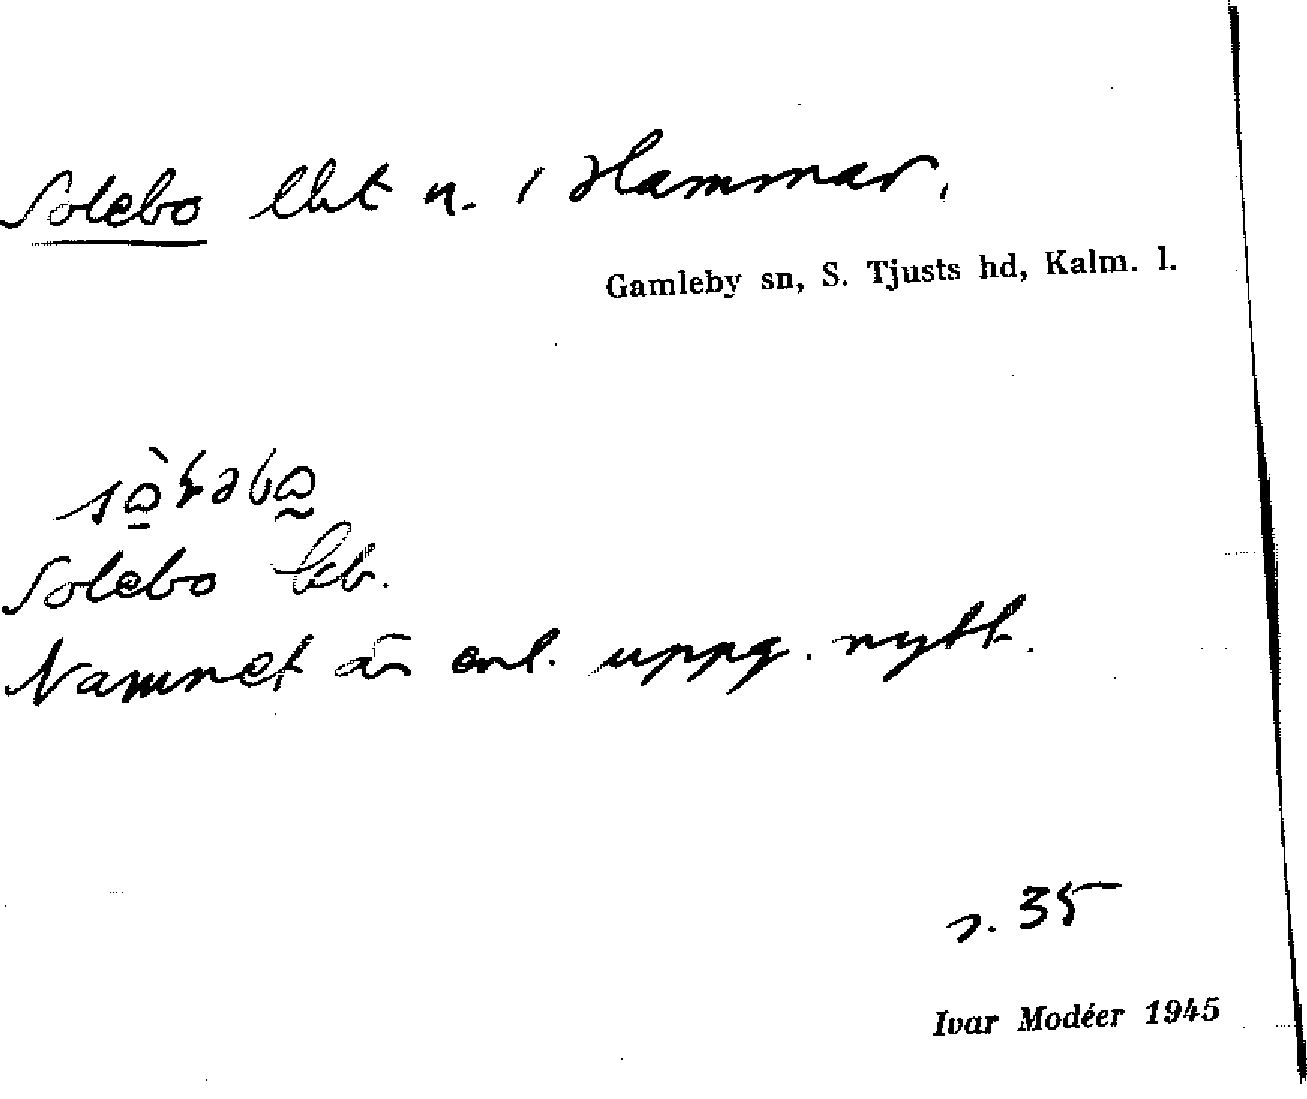 Solebo lht n. i Hammar,
Gamleby sn, S. Tjusts hd, Kalm. l.
Solebo kb.
Namnet är enl. uppg. nytt.
s. 35
Ivar Modéer 1945